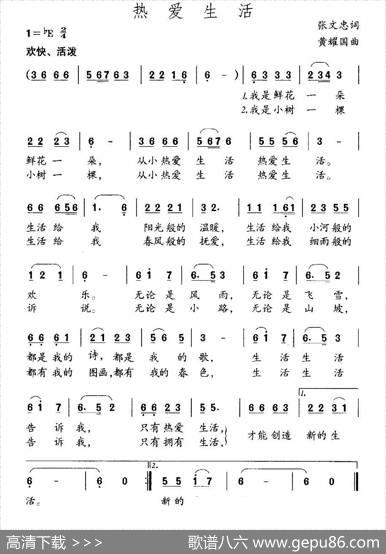 热爱生活
1=♭E 2/4
张文忠词
黄耀国曲
欢快、活泼
(3 6 6 6 | 5 6 7 6 3 | 2 2 1 6 | 6 - ) | 6 3 3 3 | 2 3 4 3 |
1.我是鲜花一朵
2.我是小树一棵
2 2 2 3 | 6 - | 3 6 6 6 | 5 6 7 6 | 5 5 5 6 | 3 - |
鲜花一朵,从小热爱生活热爱生活。
小树一棵,从小热爱生活热爱生活。
6 6 6 5 6 | 1. 6 | 2 2 2 1 | 3 2 2 | 1 1 1 6 1 | 2 3 5 5 |
生活给我阳光般的温暖,生活给我小河般的
生活给我春风般的抚爱,生活给我细雨般的
1 2 1 | 6 - | 6 1 7 | 6. 5 3 | 6 1 7 | 6. 5 3 |
欢乐。无论是风雨,无论是飞雪,
诉说。无论是小路,无论是山坡,
6 6 6 1 | 2 1 2 3 | 5 5 1 7 | 6 - | 6 1 7 | 6. 5 3 |
都是我的诗,都是我的歌,生活生活
都有我的图画,都有我的春色,生活生活
6 1 7 | 6. 5 2 | 2 1 2 2 | 3 6 5 5 | 6 6 6 3 | 2 2 3 1 |
1.
告诉我,只有热爱生活,
告诉我,只有拥有生活,
才能创造新的生
6 - | 6 0 :‖ 5 5 1 7 | 6 - | 6 - | 6 0 ‖
2.
活。新的
高清下载 >>>
歌谱八六 www.gepu86.com